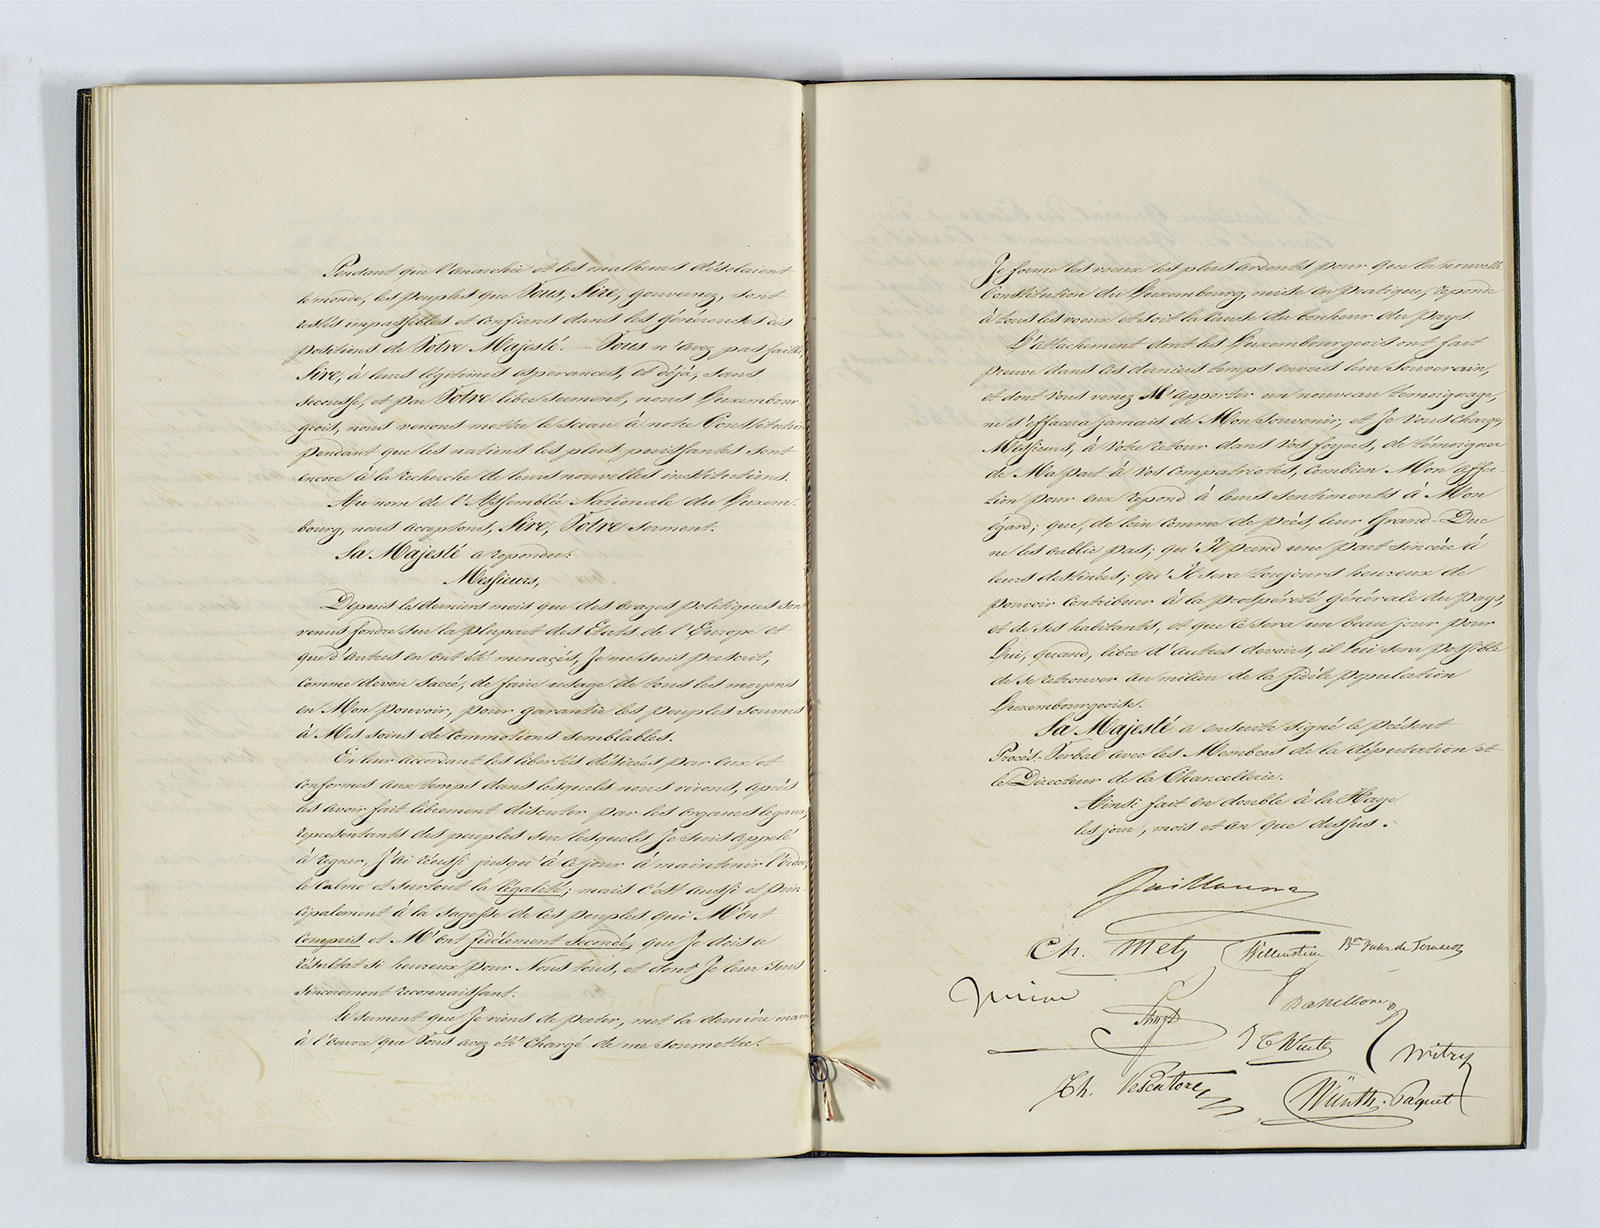 Pendant que l'anarchie et les malheurs désolaient
le monde, les peuples que Vous, Sire, gouvernez, sont
restés impassibles et confians dans les généreuses dis
positions de Votre Majesté. — Vous n'avez pas failli,
Sire, à leurs légitimes espérances, et déjà, sans
secousse, et par Votre libre serment, nous Luxembour
geois, nous venons mettre le sceau à notre Constitution
pendant que les nations les plus puissantes sont
encore à la recherche de leurs nouvelles institutions.
Au nom de l'Assemblée Nationale du Luxem-
bourg, nous acceptons, Sire, Votre serment.
Sa Majesté a répondu:
Messieurs,
Depuis les derniers mois que des orages politiques sont
venus fondre sur la plupart des Etats de l'Europe et
que d'autres en ont été menacés, Je me suis prescrit,
comme devoir sacré, de faire usage de tous les moyens
en Mon pouvoir, pour garantir les peuples soumis
à Mes soins de commotions semblables.
En leur accordant les libertés désirées par eux et
conformes aux temps dans lesquels nous vivons, après
les avoir fait librement discuter par les organes légaux,
représentants des peuples sur lesquels Je suis appelé
à régner, J'ai réussi jusqu'à ce jour à maintenir l'ordre,
le calme et surtout la légalité; mais c'est aussi et prin-
cipalement à la sagesse de ces peuples qui M'ont
compris et M'ont fidèlement secondé, que Je dois ce
résultat si heureux pour Nous tous, et dont Je leur suis
sincèrement reconnaissant.
Le serment que Je viens de prêter, met la dernière main
à l'oeuvre que Vous avez été chargé de me soumettre. —
Je forme les voeux les plus ardents pour que la nouvelle
Constitution du Luxembourg, mise en pratique, reponde
à tous les voeux et soit la cause du bonheur du pays
L'attachement dont les Luxembourgeois ont fait
preuve dans ces derniers temps envers leur Souverain,
et dont Vous venez M'apporter un nouveau témoignage,
ne s'effacera jamais de Mon souvenir, et Je Vous charge,
Messieurs, à Votre retour dans Vos foyers, de témoigner
de Ma part à Vos compatriotes, combien Mon affec-
tion pour eux repond à leurs sentiments à Mon
égard; que, de loin comme de près, leur Grand-Duc
ne les oublie pas; qu'Il prend une part sincère à
leurs destinées; qu'Il sera toujours heureux de
pouvoir contribuer à la prospérité générale du pays,
et de ses habitants, et que ce sera un beau jour pour
Lui, quand, libre d'autres devoirs, il lui sera possible
de se retrouver au milieu de la fidèle population
Luxembourgeoise.
Sa Majesté a ensuite signé le présent
Procès-Verbal avec les Membres de la députation et
le Directeur de la Chancellerie.
Ainsi fait en double à la Haye
les jour, mois et an que dessus. -
Guillaume
Ch. Metz Willmar
Jurion
J C Wurth Mitry
Th. Pescatore Würth-Paquet